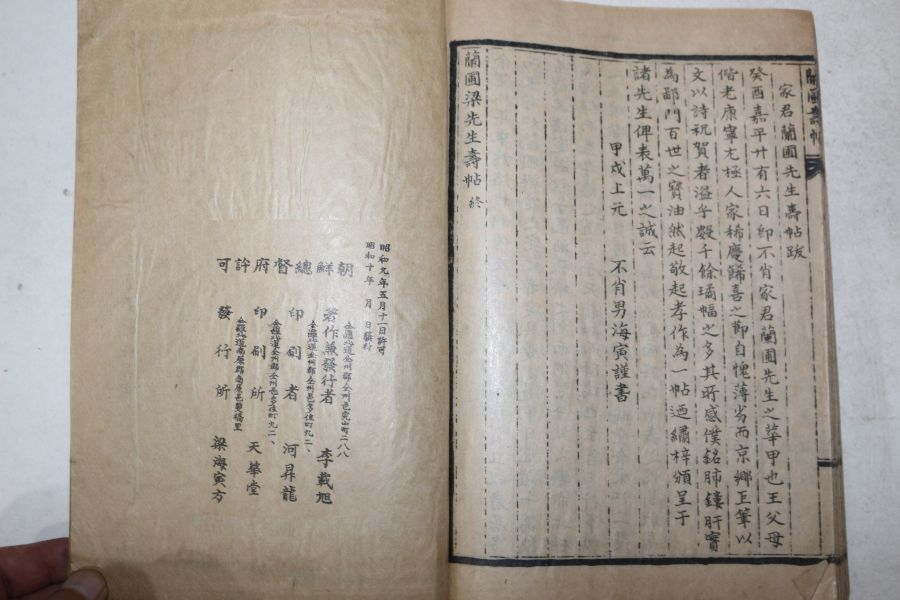 家君蘭圃先生壽帖跋
癸酉嘉平廿有六日卽不肖家君蘭圃先生之華甲也王父母
偕老康寧尤極人家稀慶歸喜之節自愧薄劣而京鄕巨筆以
文以詩祝賀者溢乎數千餘璚幅之多其所感僕銘肺鏤肝實
為鄙門百世之寶油然起敬起孝作為一帖迺繡梓頒呈于
諸先生俾表萬一之誠云
甲戌上元 不肖男海寅謹書
蘭圃梁先生壽帖 終
昭和九年五月十一日許可
昭和十年 月 日發行
朝鮮總督府許可
全羅北道全州郡全州邑完山町二八八
著作兼發行者 李載旭
全羅北道全州郡全州邑多佳町九二、
印刷者 河昇龍
全羅北道全州郡全州邑多佳町九二、
印刷所 天華堂
全羅北道南原郡南原邑雙橋里
發行所 梁海寅方